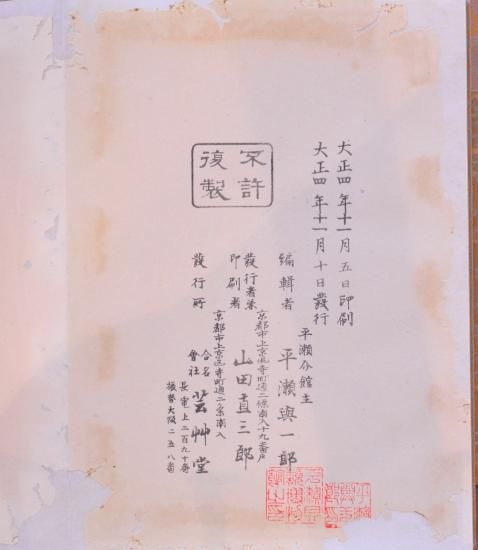 大正四年十一月五日印刷
大正四年十一月十日發行
不許
復製
平瀬介館主
編輯者 平瀬與一郎
京都市上京區寺町通二條南入十九番戸
發行者兼
印刷者 山田直三郎
京都市上京區寺町通二条南入
發行所 合名會社 芸艸堂
長電上二百九十番
振替大阪二五八番